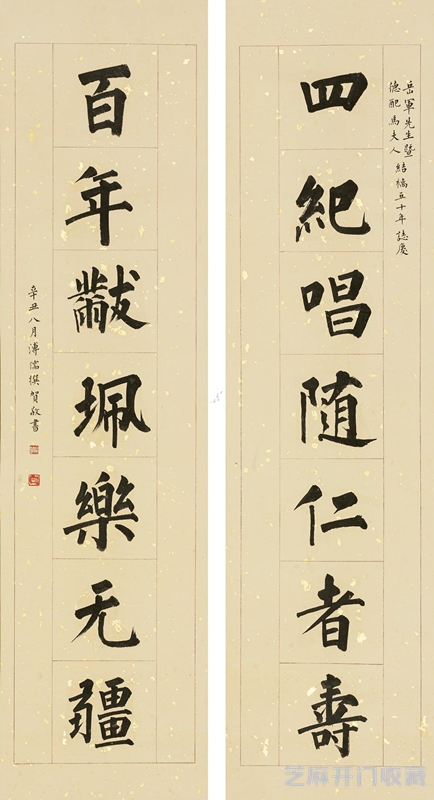 岳軍先生暨
德配馬夫人 結褵五十年誌慶
四紀唱随仁者壽
百年黻珮樂无疆
辛丑八月溥儒撰賀敬書
芝麻开门收藏